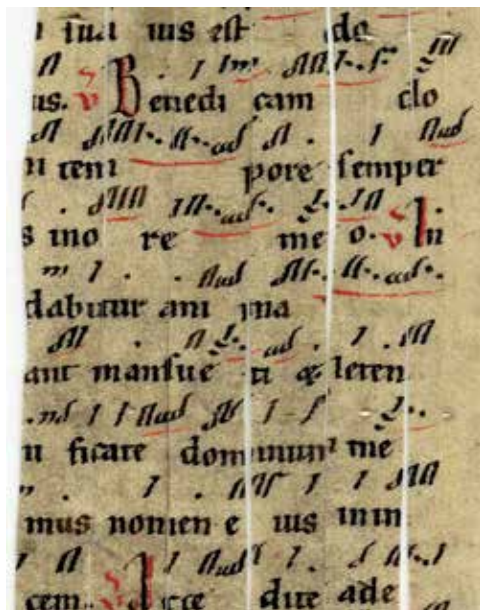 sua ius est do
us. v Benedi cam do
ni tem pore semper
s mo re me o. v In
dabitur ani ma
ant mansue ti & leten
ni ficate dominum me
mus nomen e ius inin
cem. Acce dite ade